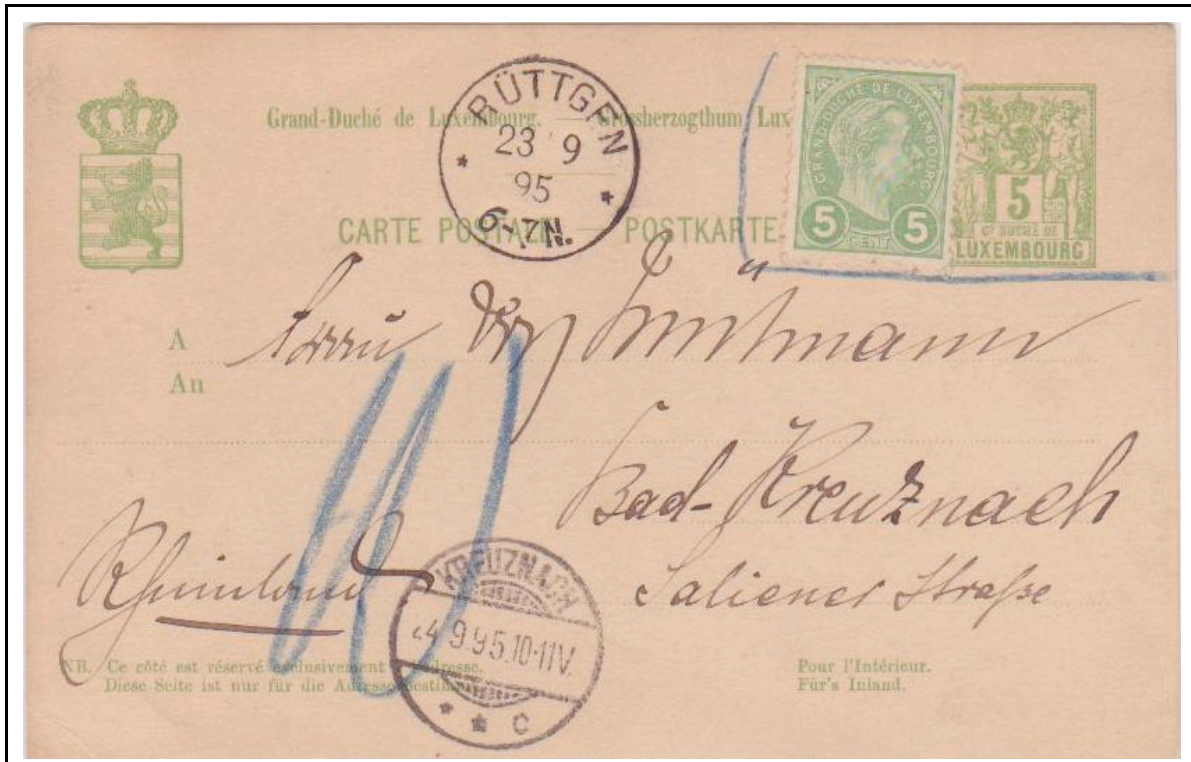 Grand-Duché de Luxembourg. — Grossherzogthum Lux
RÜTTGEN
23 9
95
6-7N.
CARTE POSTALE — POSTKARTE
GRAND-DUCHÉ DE LUXEMBOURG
5 CENT 5
5
Gᴅ DUCHÉ DE
LUXEMBOURG
A Frau
An
Bad-Kreuznach
Rheinland
Saliener Straße
KREUZNACH
24.9.95.10-11V.
* * C
NB. Ce côté est réservé exclusivement adresse.
Diese Seite ist nur für die Adresse bestimmt
Pour l'Intérieur.
Für's Inland.